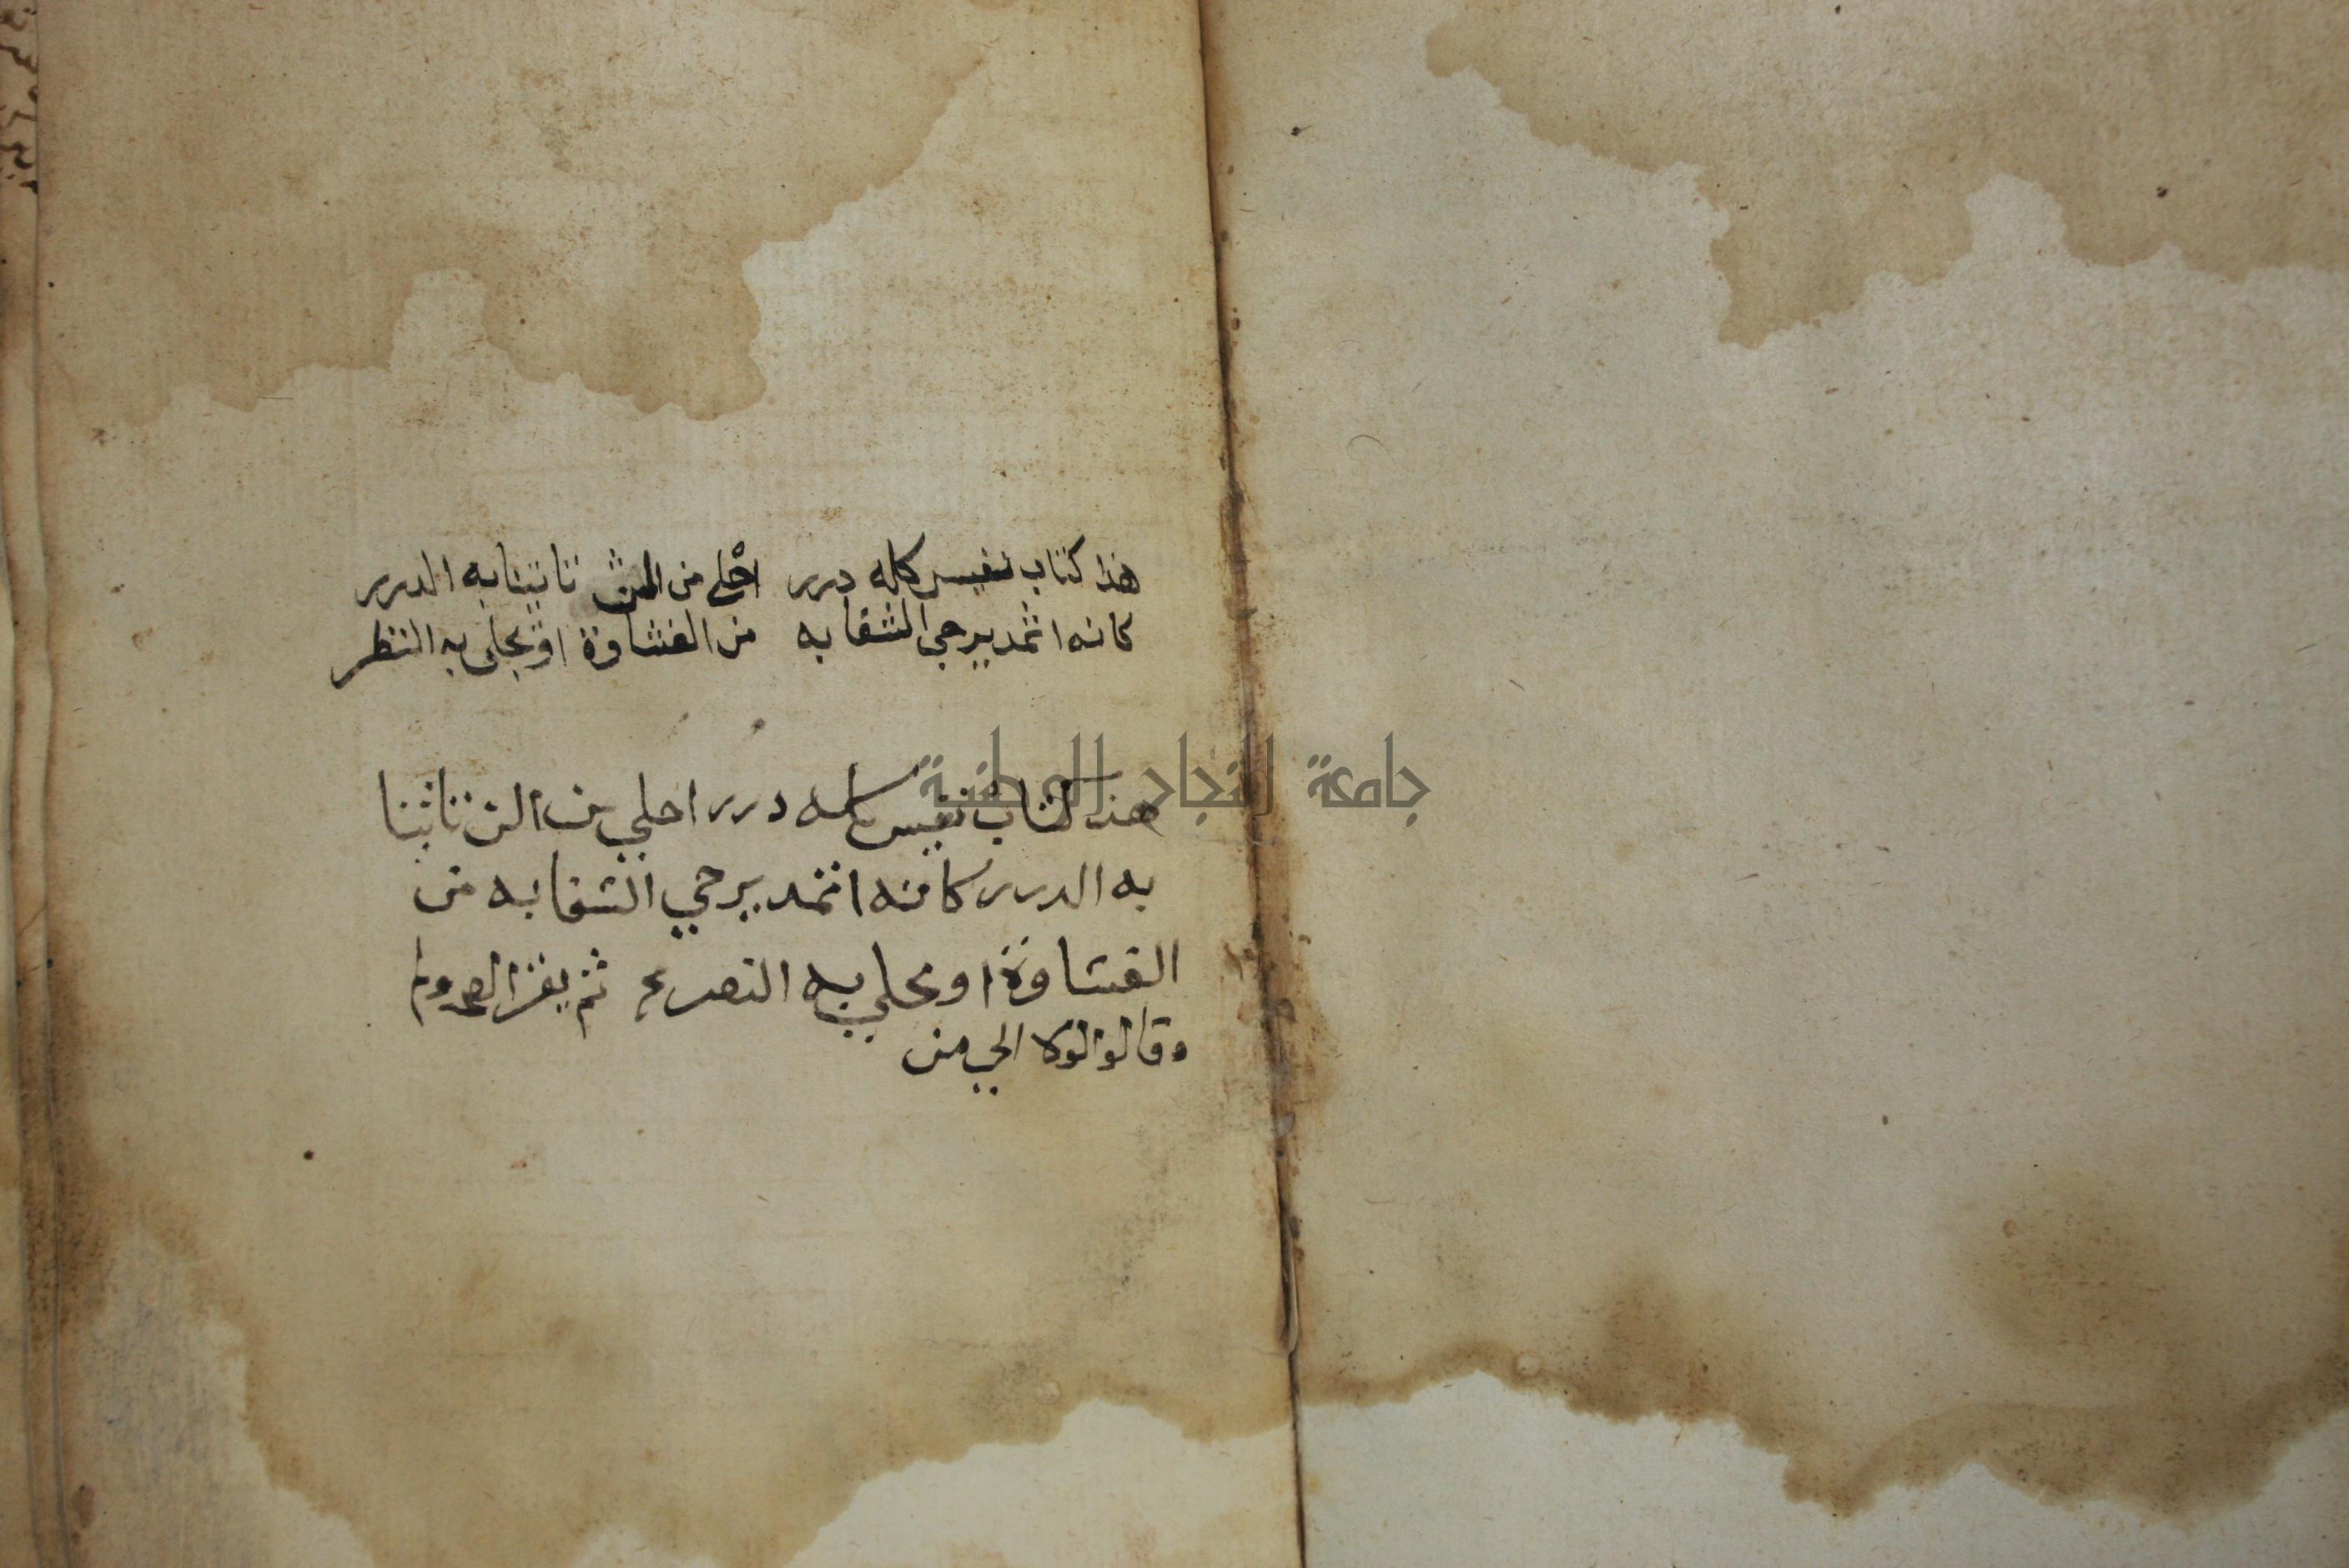 هذا كتاب نفيس كله درر احْلى من المن تاتينا به الدرر
كانه اثمد يرجى الشفا به من الغشاوة او يجلى به النظر
جامعة النجاح الوطنية
هذا كتاب نفيس كله درر احلي من المن تاتينا
به الدرر كانه اثمد يرجي الشفا به من
الغشاوة او يحلي به النصر ثم يقرا
وقالو الي من